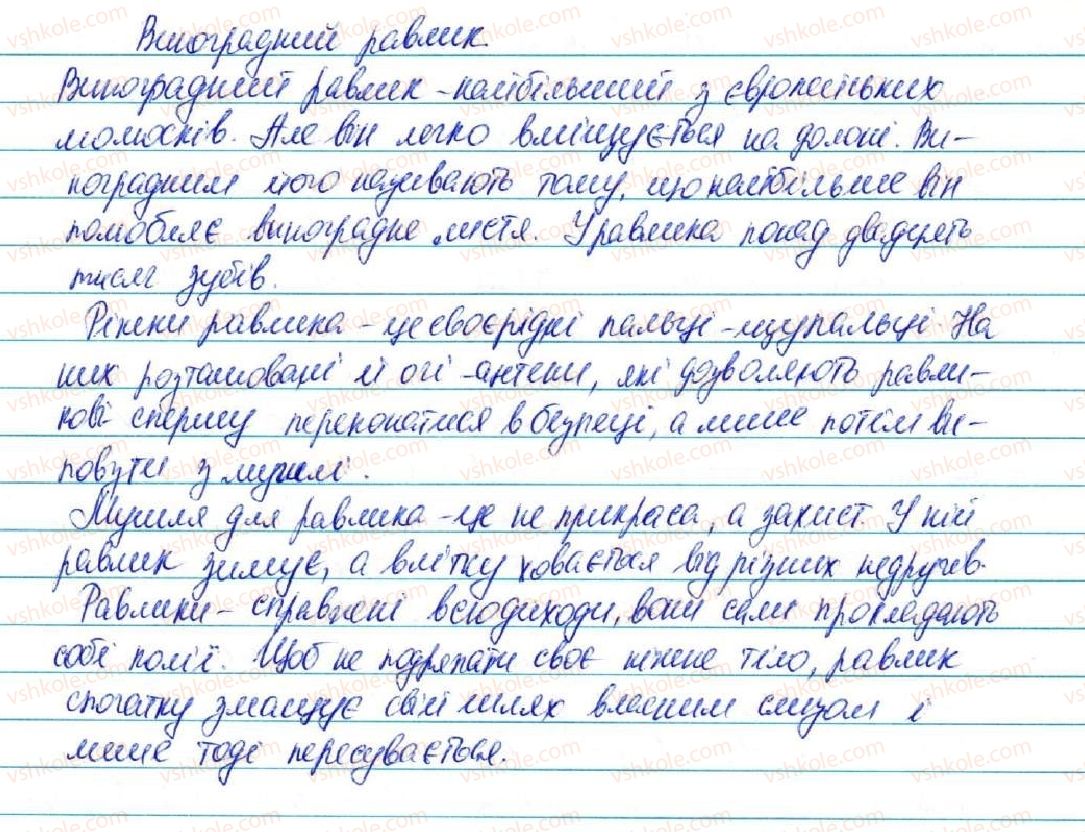 Виноградний равлик.
Виноградний равлик - найбільший з європейських
молюсків. Але він легко вміщується на долоні. Ви-
ноградним його називають тому, що найбільше він
полюбляє виноградне листя. У равлика понад двадцять
тисяч зубів.
Ріжки равлика - це своєрідні пальці - щупальці. На
них розташовані й очі - антени, які дозволяють равли-
кові спершу переконатися в безпеці, а лише потім ви-
повзти з мушлі.
Мушля для равлика - це не прикраса, а захист. У ній
равлик зимує, а влітку ховається від різних недругів.
Равлики - справжні всюдиходи, вони самі прокладають
собі колії. Щоб не подряпати своє ніжне тіло, равлик
спочатку змащує свій шлях власним слизом і
лише тоді пересувається.